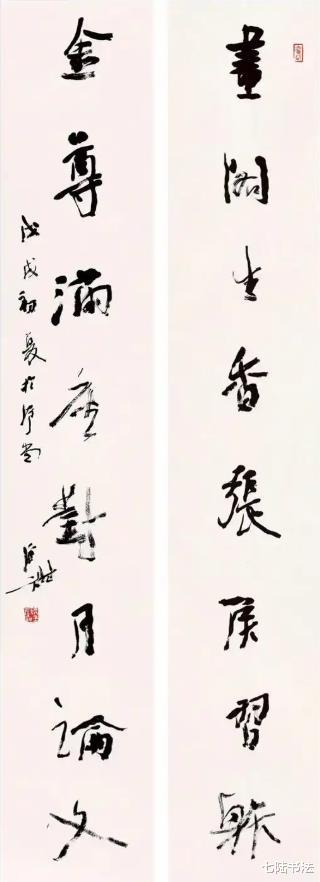 畫閣生香張侯習䠶
金尊滿座對月論文
戊戌初夏於
七陆书法